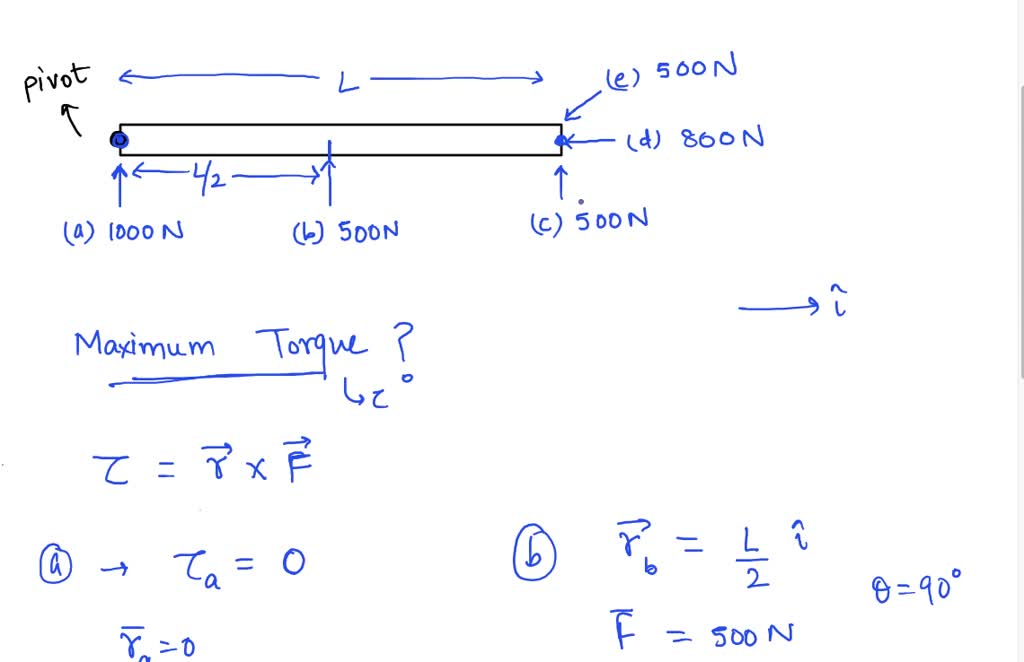 pivot
L
(e) 500N
(d) 800N
L/2
(a) 1000 N
(b) 500N
(c) 500N
î
Maximum Torque ?
↳ τ
τ = r⃗ x F⃗
ⓐ → τₐ = 0
r̅ₐ = 0
ⓑ r⃗_b = L/2 î
θ = 90°
F̅ = 500 N